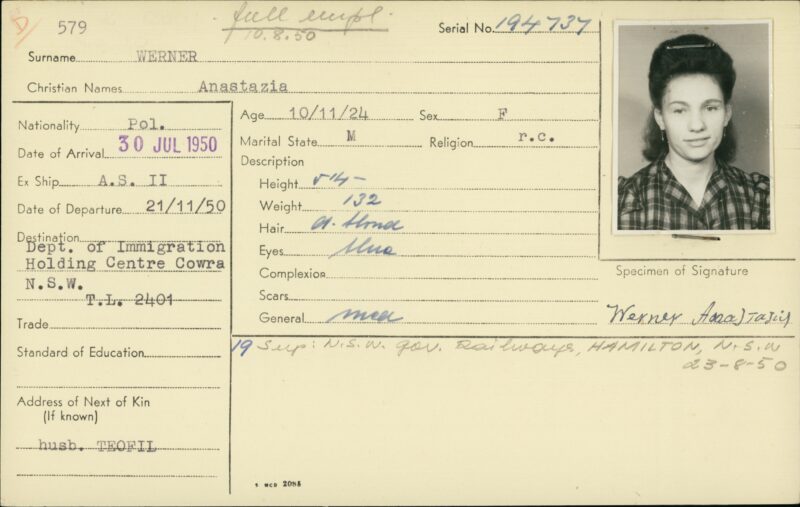 D/ 579
full empl.
10.8.50
Serial No. 194737
Surname WERNER
Christian Names Anastazia
Nationality Pol.
Date of Arrival 30 JUL 1950
Ex Ship A.S. II
Date of Departure 21/11/50
Destination
Dept. of Immigration
Holding Centre Cowra
N.S.W.
T.L. 2401
Trade
Standard of Education
Address of Next of Kin
(If known)
husb. TEOFIL
Age 10/11/24 Sex F
Marital State M Religion r.c.
Description
Height 5'4-
Weight 132
Hair d. blond
Eyes blue
Complexion
Scars
General med
Specimen of Signature
Werner Anastazia
19 Sup: N.S.W. Gov. Railways, HAMILTON, N.S.W
23-8-50
2084